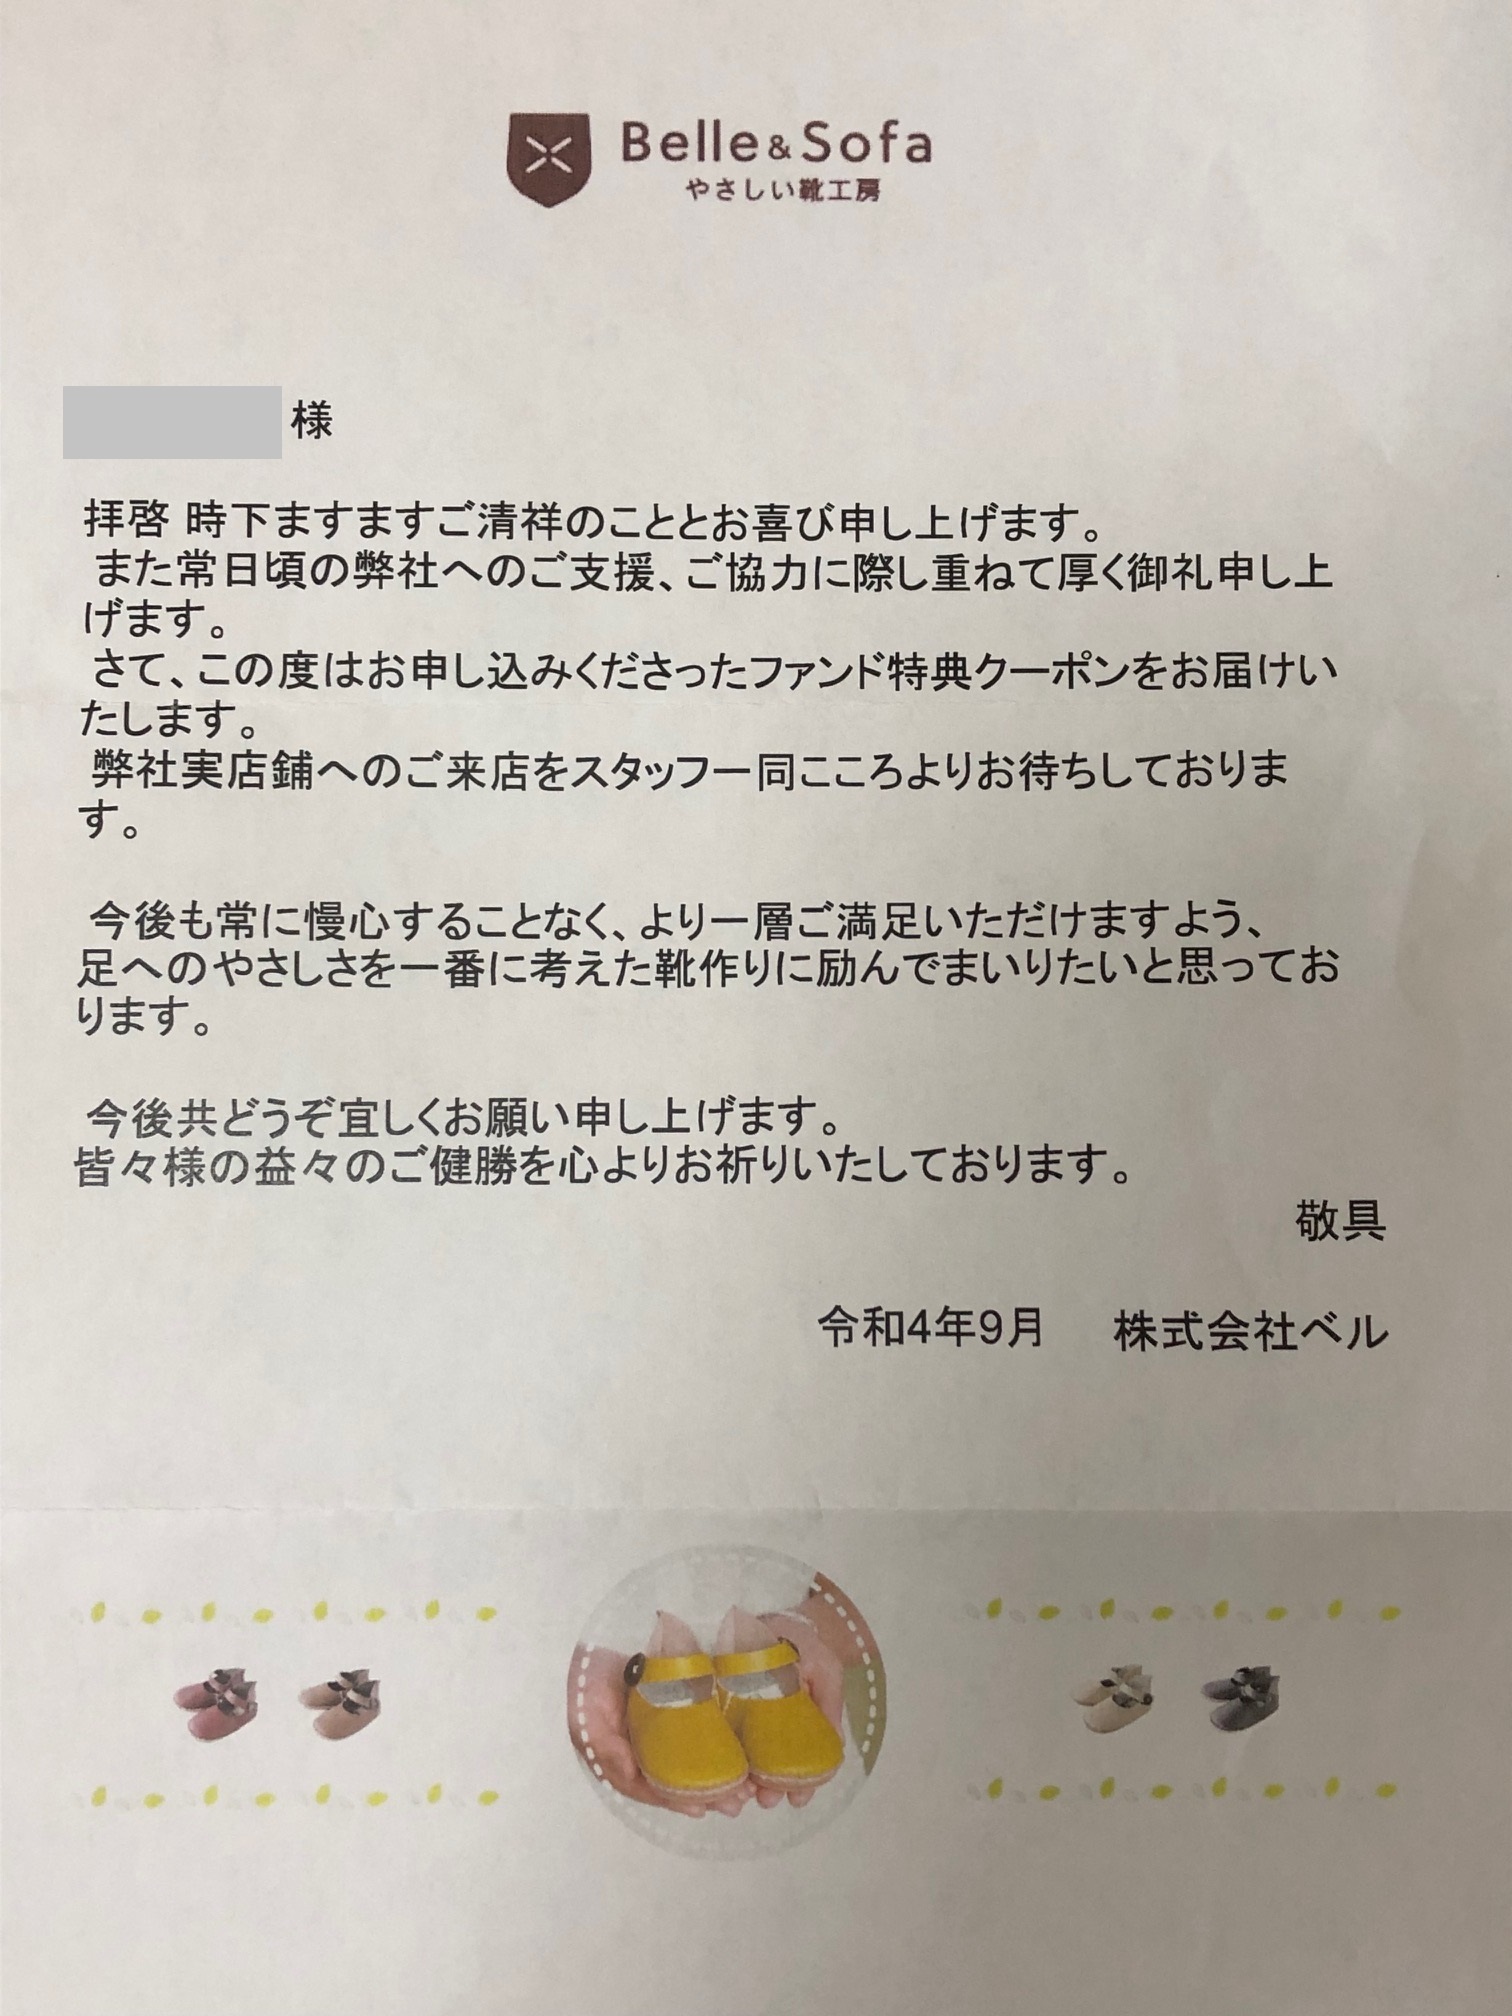 Belle&Sofa
やさしい靴工房
様
拝啓 時下ますますご清祥のこととお喜び申し上げます。
また常日頃の弊社へのご支援、ご協力に際し重ねて厚く御礼申し上
げます。
さて、この度はお申し込みくださったファンド特典クーポンをお届けい
たします。
弊社実店鋪へのご来店をスタッフ一同こころよりお待ちしておりま
す。
今後も常に慢心することなく、より一層ご満足いただけますよう、
足へのやさしさを一番に考えた靴作りに励んでまいりたいと思ってお
ります。
今後共どうぞ宜しくお願い申し上げます。
皆々様の益々のご健勝を心よりお祈りいたしております。
敬具
令和4年9月 株式会社ベル